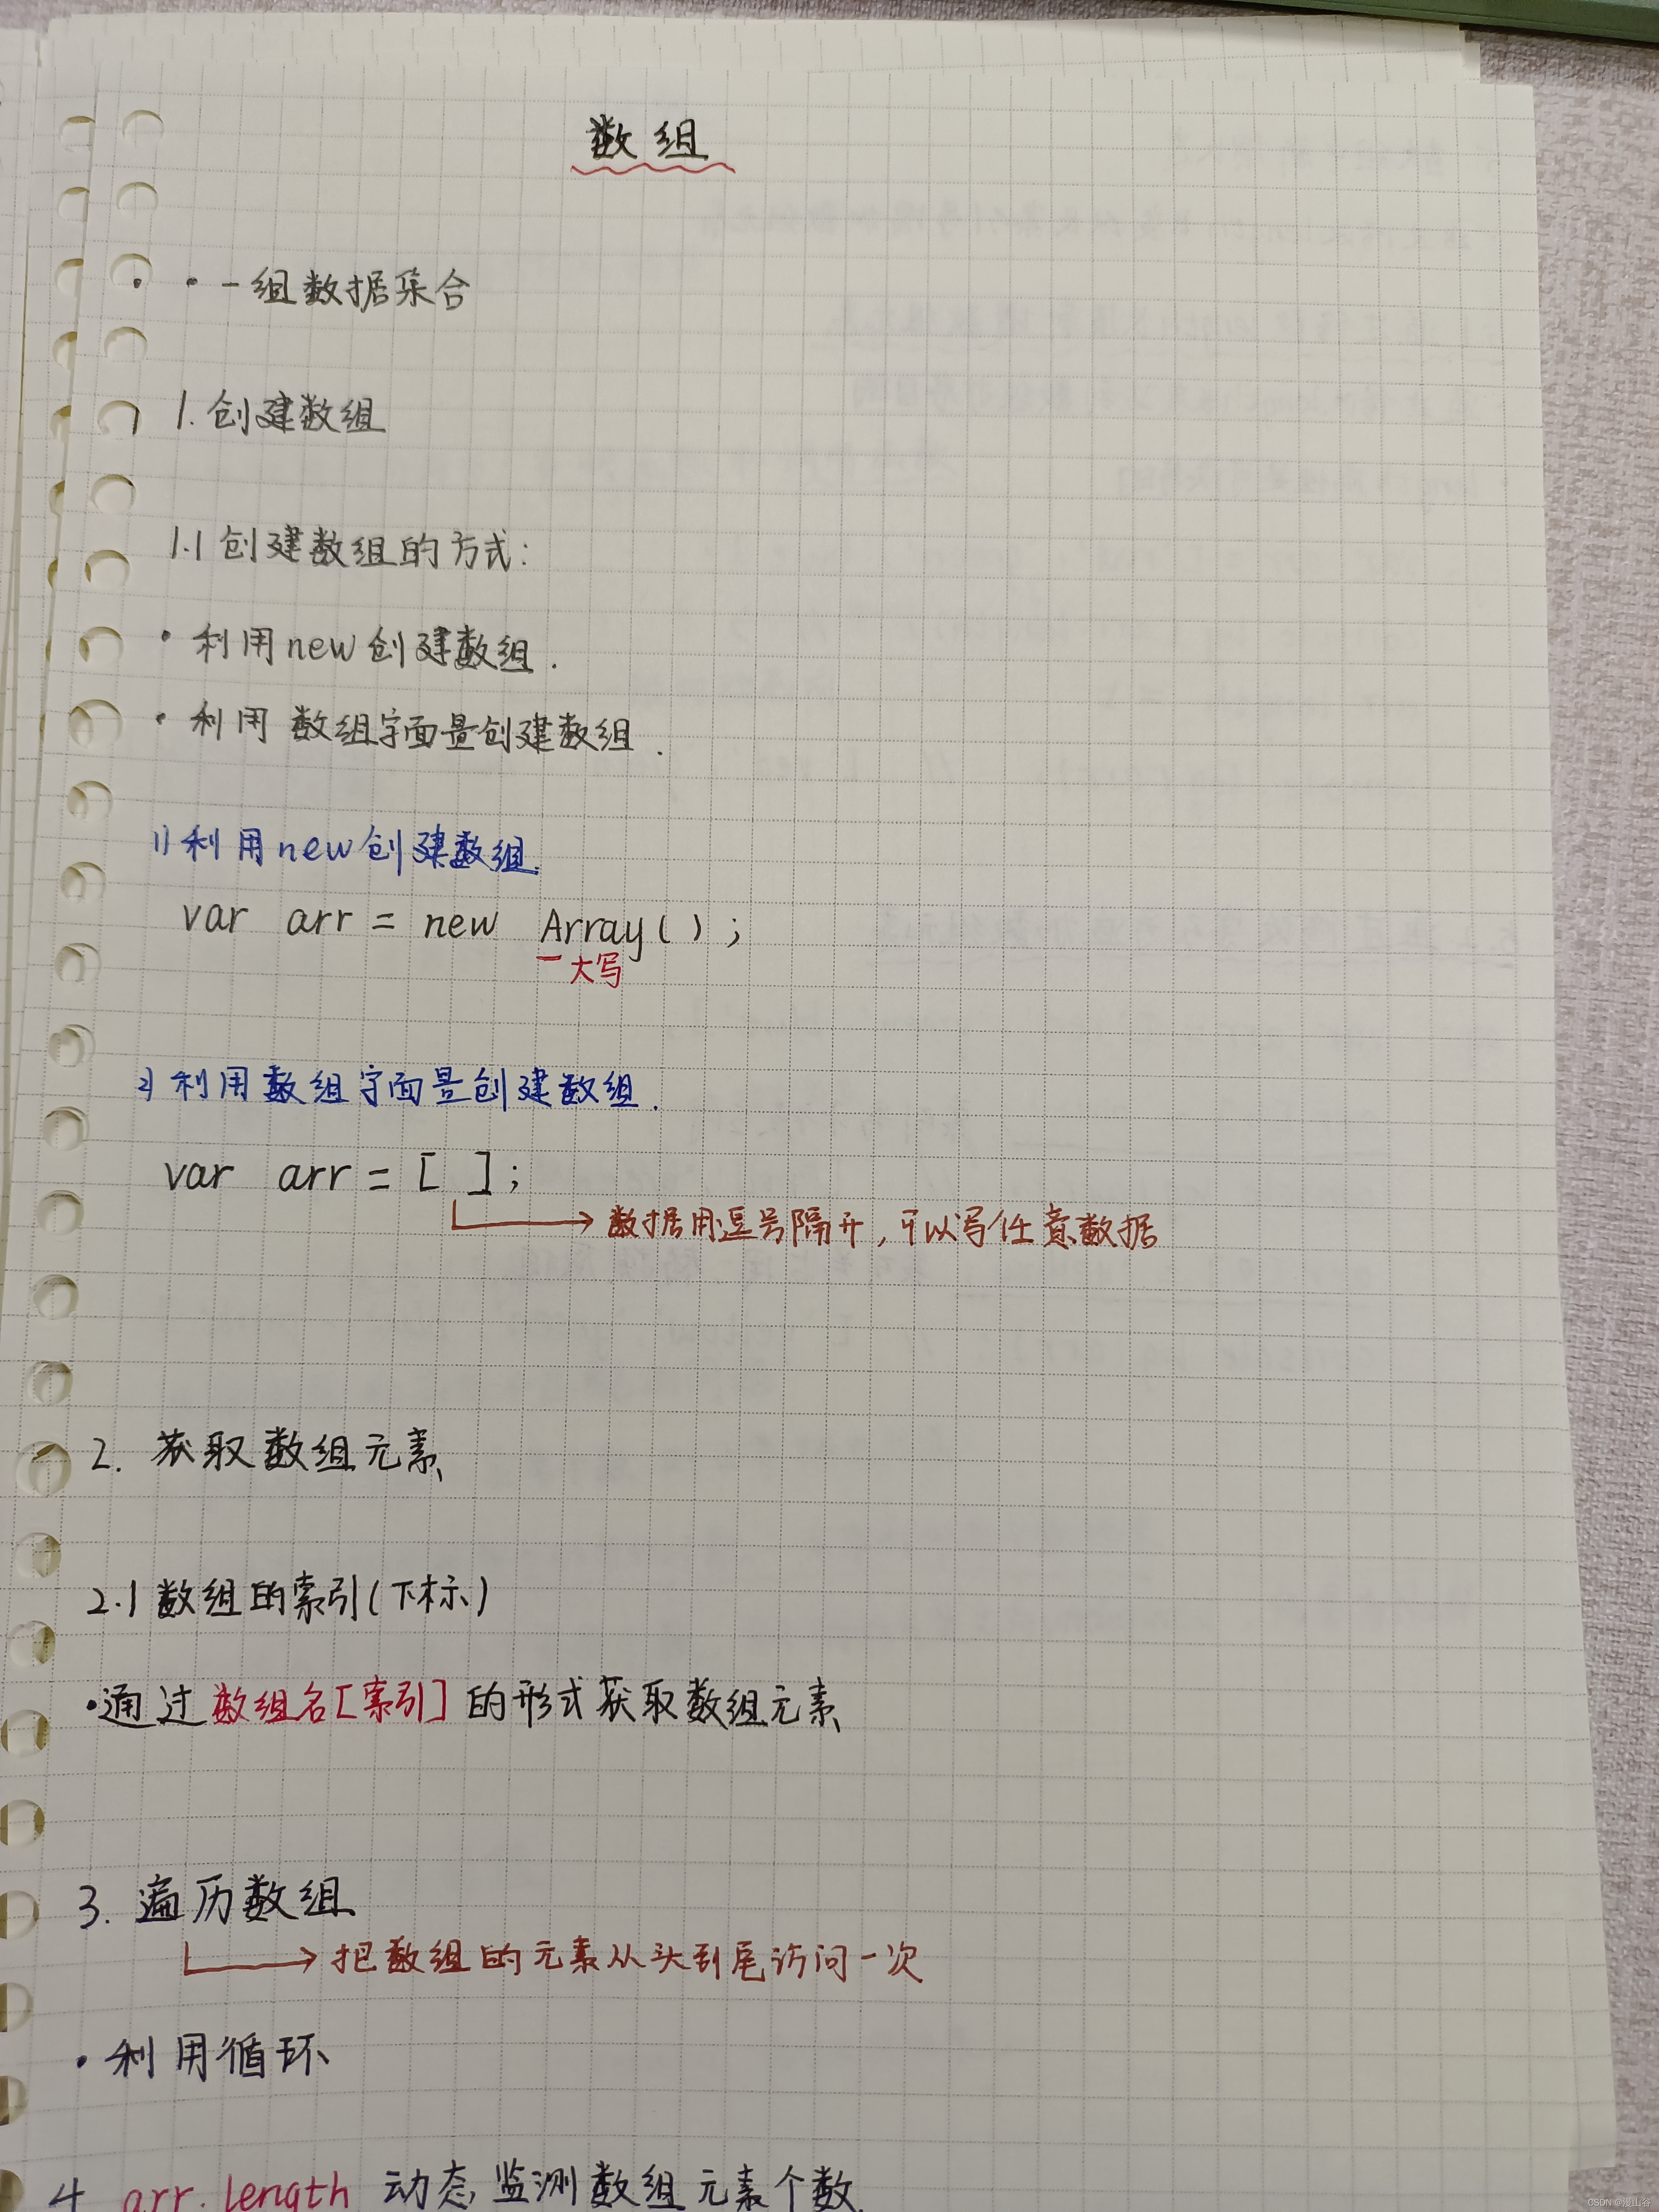 数组
· 一组数据集合
1. 创建数组
1.1 创建数组的方式:
· 利用new创建数组.
· 利用 数组字面量创建数组.
1) 利用new创建数组.
var arr = new Array();
大写
2) 利用数组字面量创建数组.
var arr = [ ];
数据用逗号隔开, 可以写任意数据
2. 获取数组元素
2.1 数组的索引(下标)
·通过数组名[索引]的形式获取数组元素
3. 遍历数组
把数组的元素从头到尾访问一次
· 利用循环
4 arr.length 动态监测数组元素个数.
CSDN @漫山谷